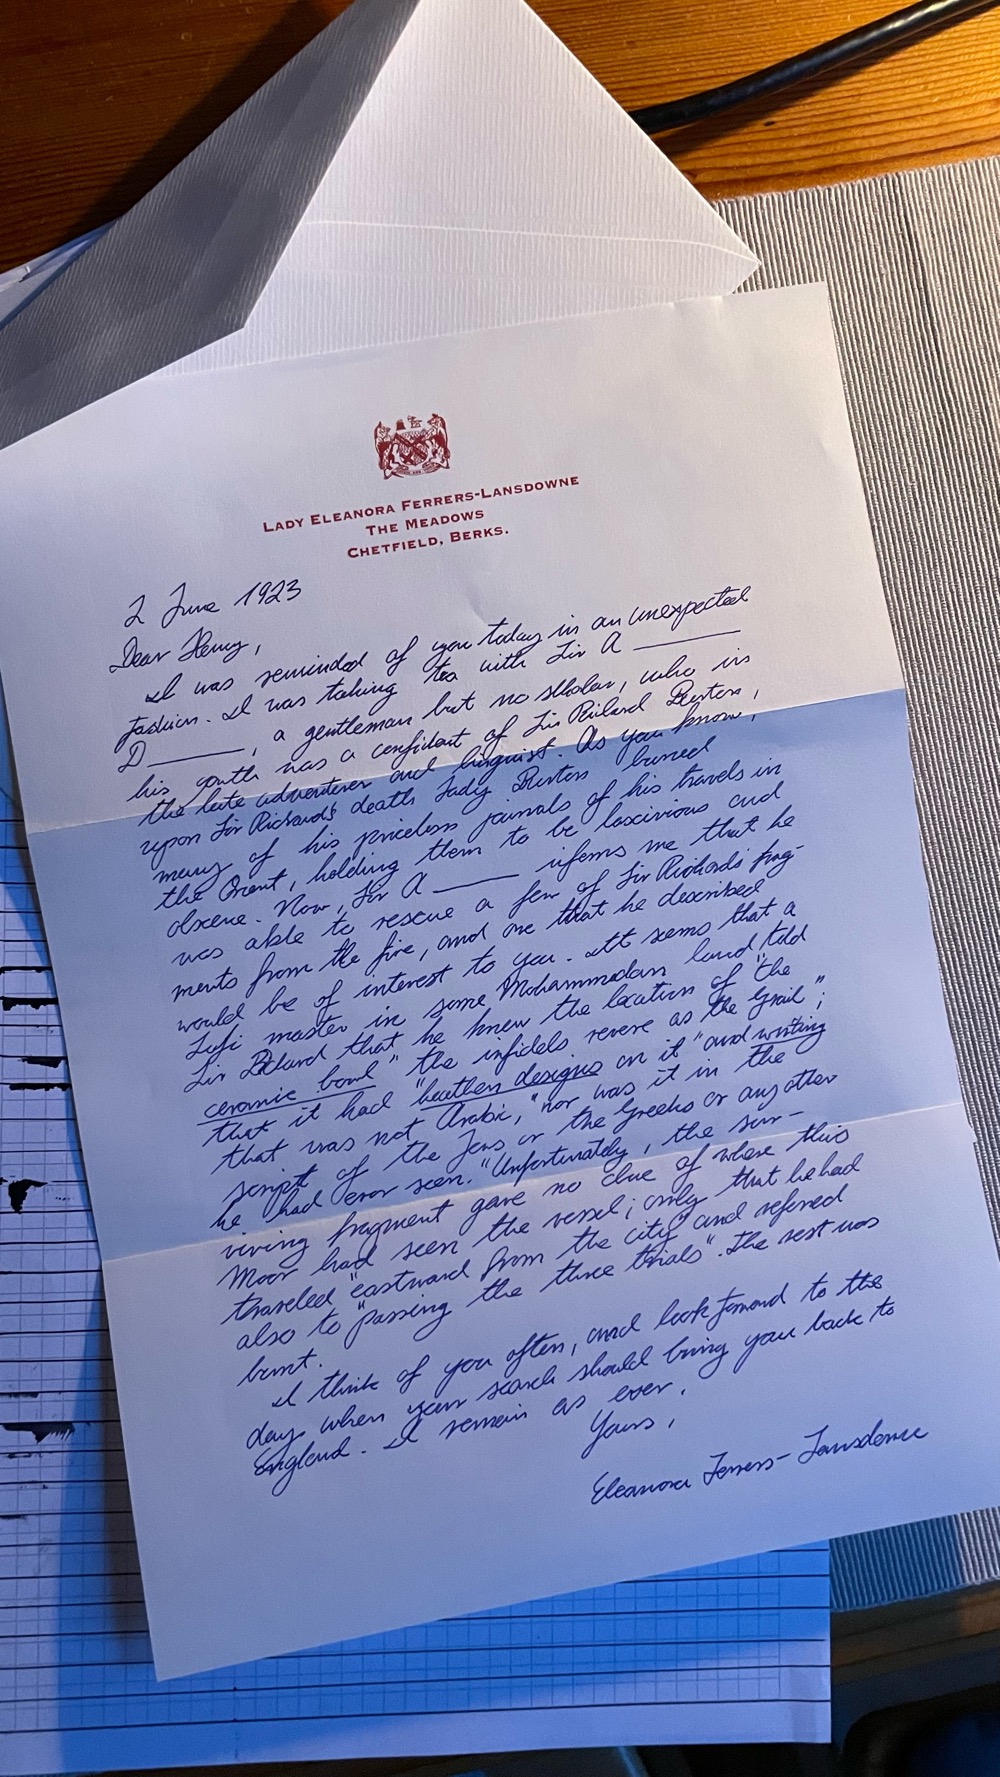 LADY ELEANORA FERRERS-LANSDOWNE
THE MEADOWS
CHETFIELD, BERKS.
2 June 1923
Dear Henry,
I was reminded of you today in an unexpected
fashion. I was taking tea with Sir A______
D______, a gentleman but no scholar, who in
his youth was a confidant of Sir Richard Burton,
the late adventurer and linguist. As you know,
upon Sir Richard's death Lady Burton burned
many of his priceless journals of his travels in
the Orient, holding them to be lascivious and
obscene. Now, Sir A______ informs me that he
was able to rescue a few of Sir Richard's frag-
ments from the fire, and one that he described
would be of interest to you. It seems that a
Sufi master in some Mohammadan land told
Sir Richard that he knew the location of "the
ceramic bowl" the infidels revere as the Grail";
that it had "heathen designs on it "and writing
that was not Arabic," nor was it in the
script of the Jews or the Greeks or any other
he had ever seen." Unfortunately, the sur-
viving fragment gave no clue of where this
Moor had seen the vessel; only that he had
traveled "eastward from the city" and referred
also to "passing the three trials". The rest was
burnt.
I think of you often, and look forward to the
day when your search should bring you back to
England. I remain as ever,
Yours,
Eleanora Ferrers-Lansdowne